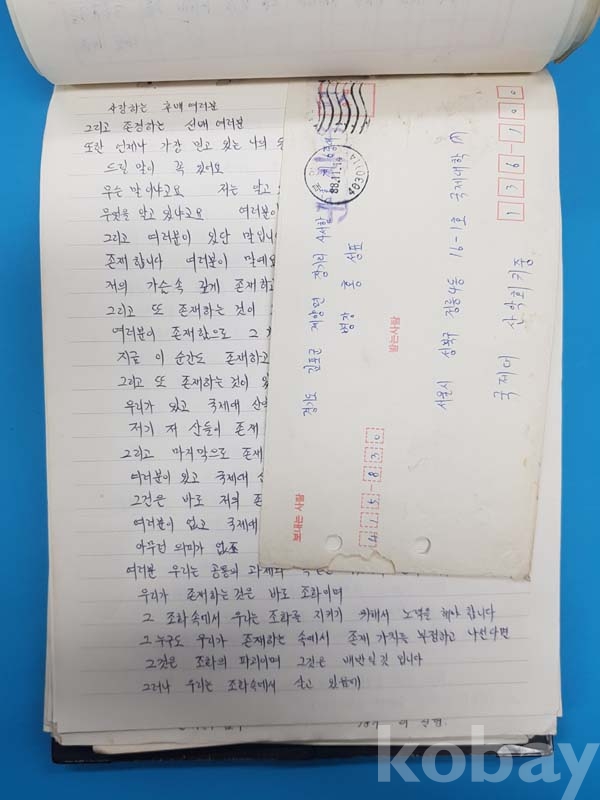 사랑하는 후배 여러분
그리고 존경하는 선배 여러분
또한 언제나 가장 믿고 있는 나의
드릴 말이 꼭 있어요
무슨 말이냐고요 저는 알고
무엇을 알고 있냐고요 여러분이
그리고 여러분이 있단 말입니
존재합니다 여러분이 말예요
저의 가슴속 깊게 존재하고
그리고 또 존재하는 것이
여러분이 존재함으로 그
지금 이 순간도 존재하고
그리고 또 존재하는 것이
우리가 있고 국제대 산
저기 저 산들이 존재
그리고 마지막으로 존재
여러분이 있고 국제대
그것은 바로 저의 존
여러분이 없고 국제대
아무런 의미가 없죠
여러분 우리는 공통의 과제
우리가 존재하는 것은 바로 조화이며
그 조화속에서 우리는 조화를 지키기 위해서 노력을 해야 합니다
그 누구도 우리가 존재하는 속에서 존재 가치를 부정하고 나선다면
그것은 조화의 파괴이며 그것은 배반일 것 입니다
그러나 우리는 조화속에서 살고 있음에
경기도 김포군 계양면 장기리 사서함
병장 홍성표
보내는 사람
415-830
88.11.
받는사람
서울시 성북구 정릉4동 16-1호 국제대학 내
국제대 산악회 귀중
136-100
kobay